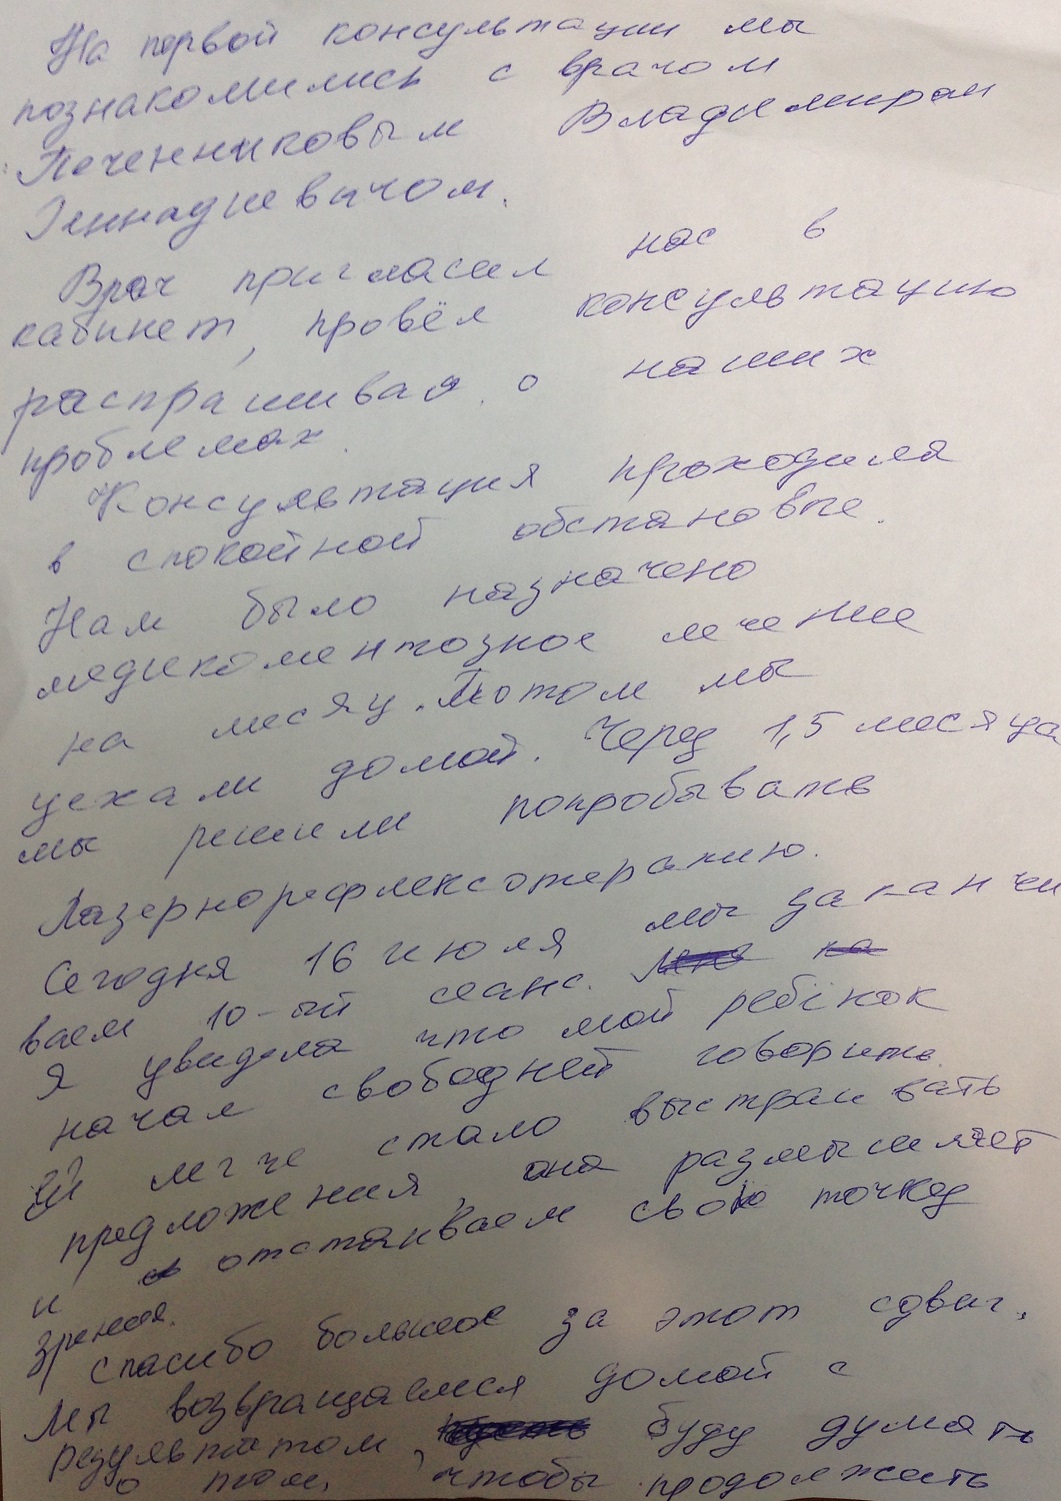 На первой консультации мы
познакомились с врачом
Печенниковым Владимирам
Геннадиевичом.
Врач пригласил нас в
кабинет, провёл консультацию
распрашивая о наших
проблемах.
Консультация проходила
в спокойной обстановке.
Нам было назначено
медикоментозное лечение
на месяц. Потом мы
уехали домой. Через 1,5 месяца
мы решили попробывать
Лазернорефлексотерапию.
Сегодня 16 июля мы заканчи
ваем 10-ый сеанс.
Я увидела что мой ребёнок
начал свободней говорить.
Ей легче стало выстраивать
предложения, она размышляет
и отстаиваем свою точку
зрения.
спасибо большое за этот сдвиг.
Мы возвращаемся домой с
результатом, буду думать
о том, чтобы продолжить